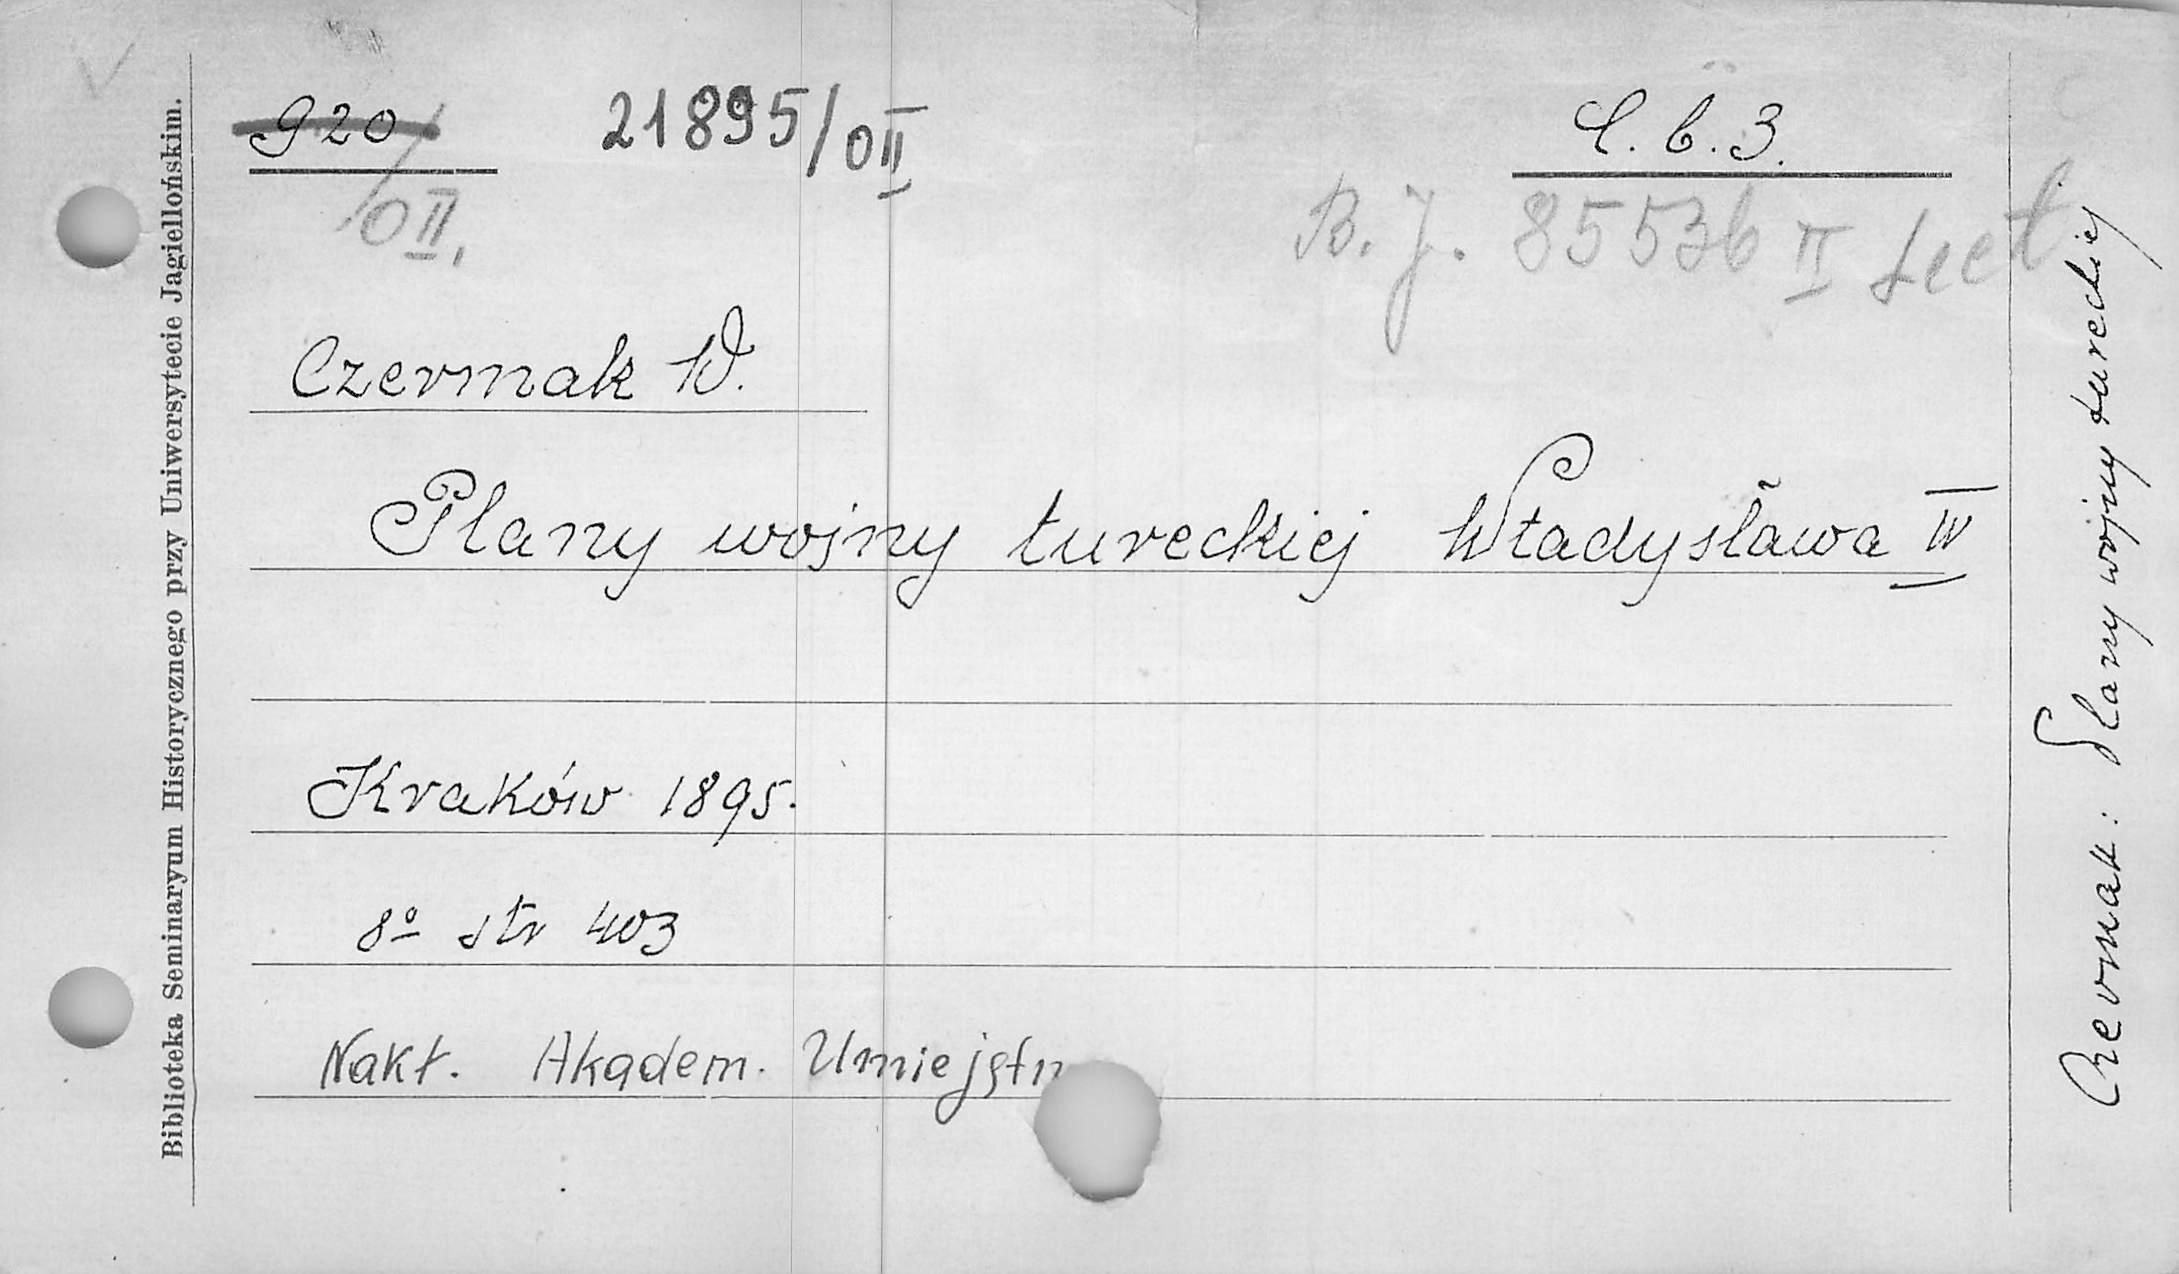 920/OII.
21895/OII
C. b. 3.
B. J. 85536 II Lect
Czermak W.
Plany wojny tureckiej Władysława IV
Kraków 1895.
8º str 403
Nakł. Akadem. Umiejętn
Biblioteka Seminaryum Historycznego przy Uniwersytecie Jagiellońskim.
Czermak: Plany wojny tureckiej